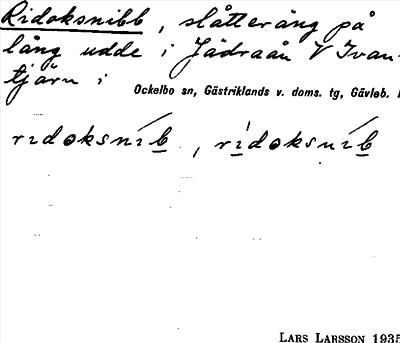 Ridoksnibb, slåtteräng på
lång udde i Jädraån V Ivan-
tjärn i
Ockelbo sn, Gästriklands v. doms. tg, Gävleb.
rıdoksnıb, rıdoksnıb
LARS LARSSON 1935